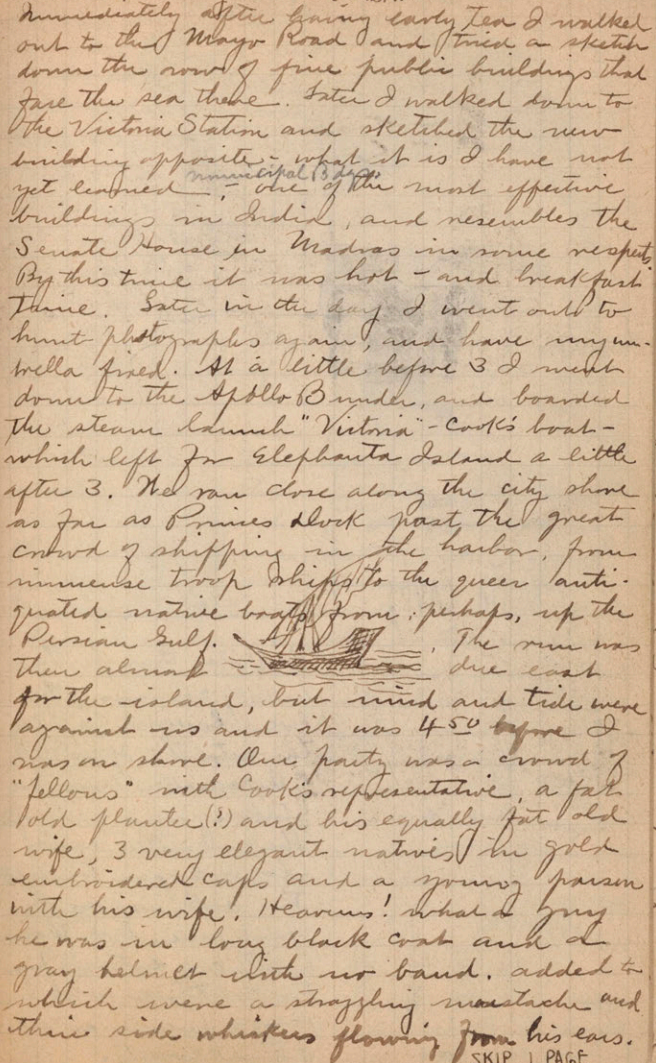 Immediately after having early tea I walked
out to the Mayo Road and tried a sketch
down the row of fine public buildings that
face the sea there. Later I walked down to
the Victoria Station and sketched the new
building opposite - what it is I have not
municipal Bldgs
yet learned, - one of the most effective
buildings in India, and resembles the
Senate House in Madras in some respects.
By this time it was hot - and breakfast
time. Later in the day I went out to
hunt photographs again, and have my um-
brella fixed. At a little before 3 I went
down to the Apollo Bunder, and boarded
the steam launch "Victoria" - Cook's boat -
which left for Elephanta Island a little
after 3. We ran close along the city shore
as far as Princes Dock past the great
crowd of shipping in the harbor, from
immense troop ships to the queer anti-
quated native boats from, perhaps, up the
Persian Gulf. The run was
then almost due east
for the island, but wind and tide were
against us and it was 4 50 before I
was on shore. Our party was a crowd of
"fellows" with Cook's representative, a fat
old planter (?) and his equally fat old
wife, 3 very elegant natives in gold
embroidered caps and a young parson
with his wife. Heavens! what a guy
he was in long black coat and a
gray helmet with no band. added to
which were a straggling mustache and
thin side whiskers flowing from his ears.
SKIP 1 PAGE